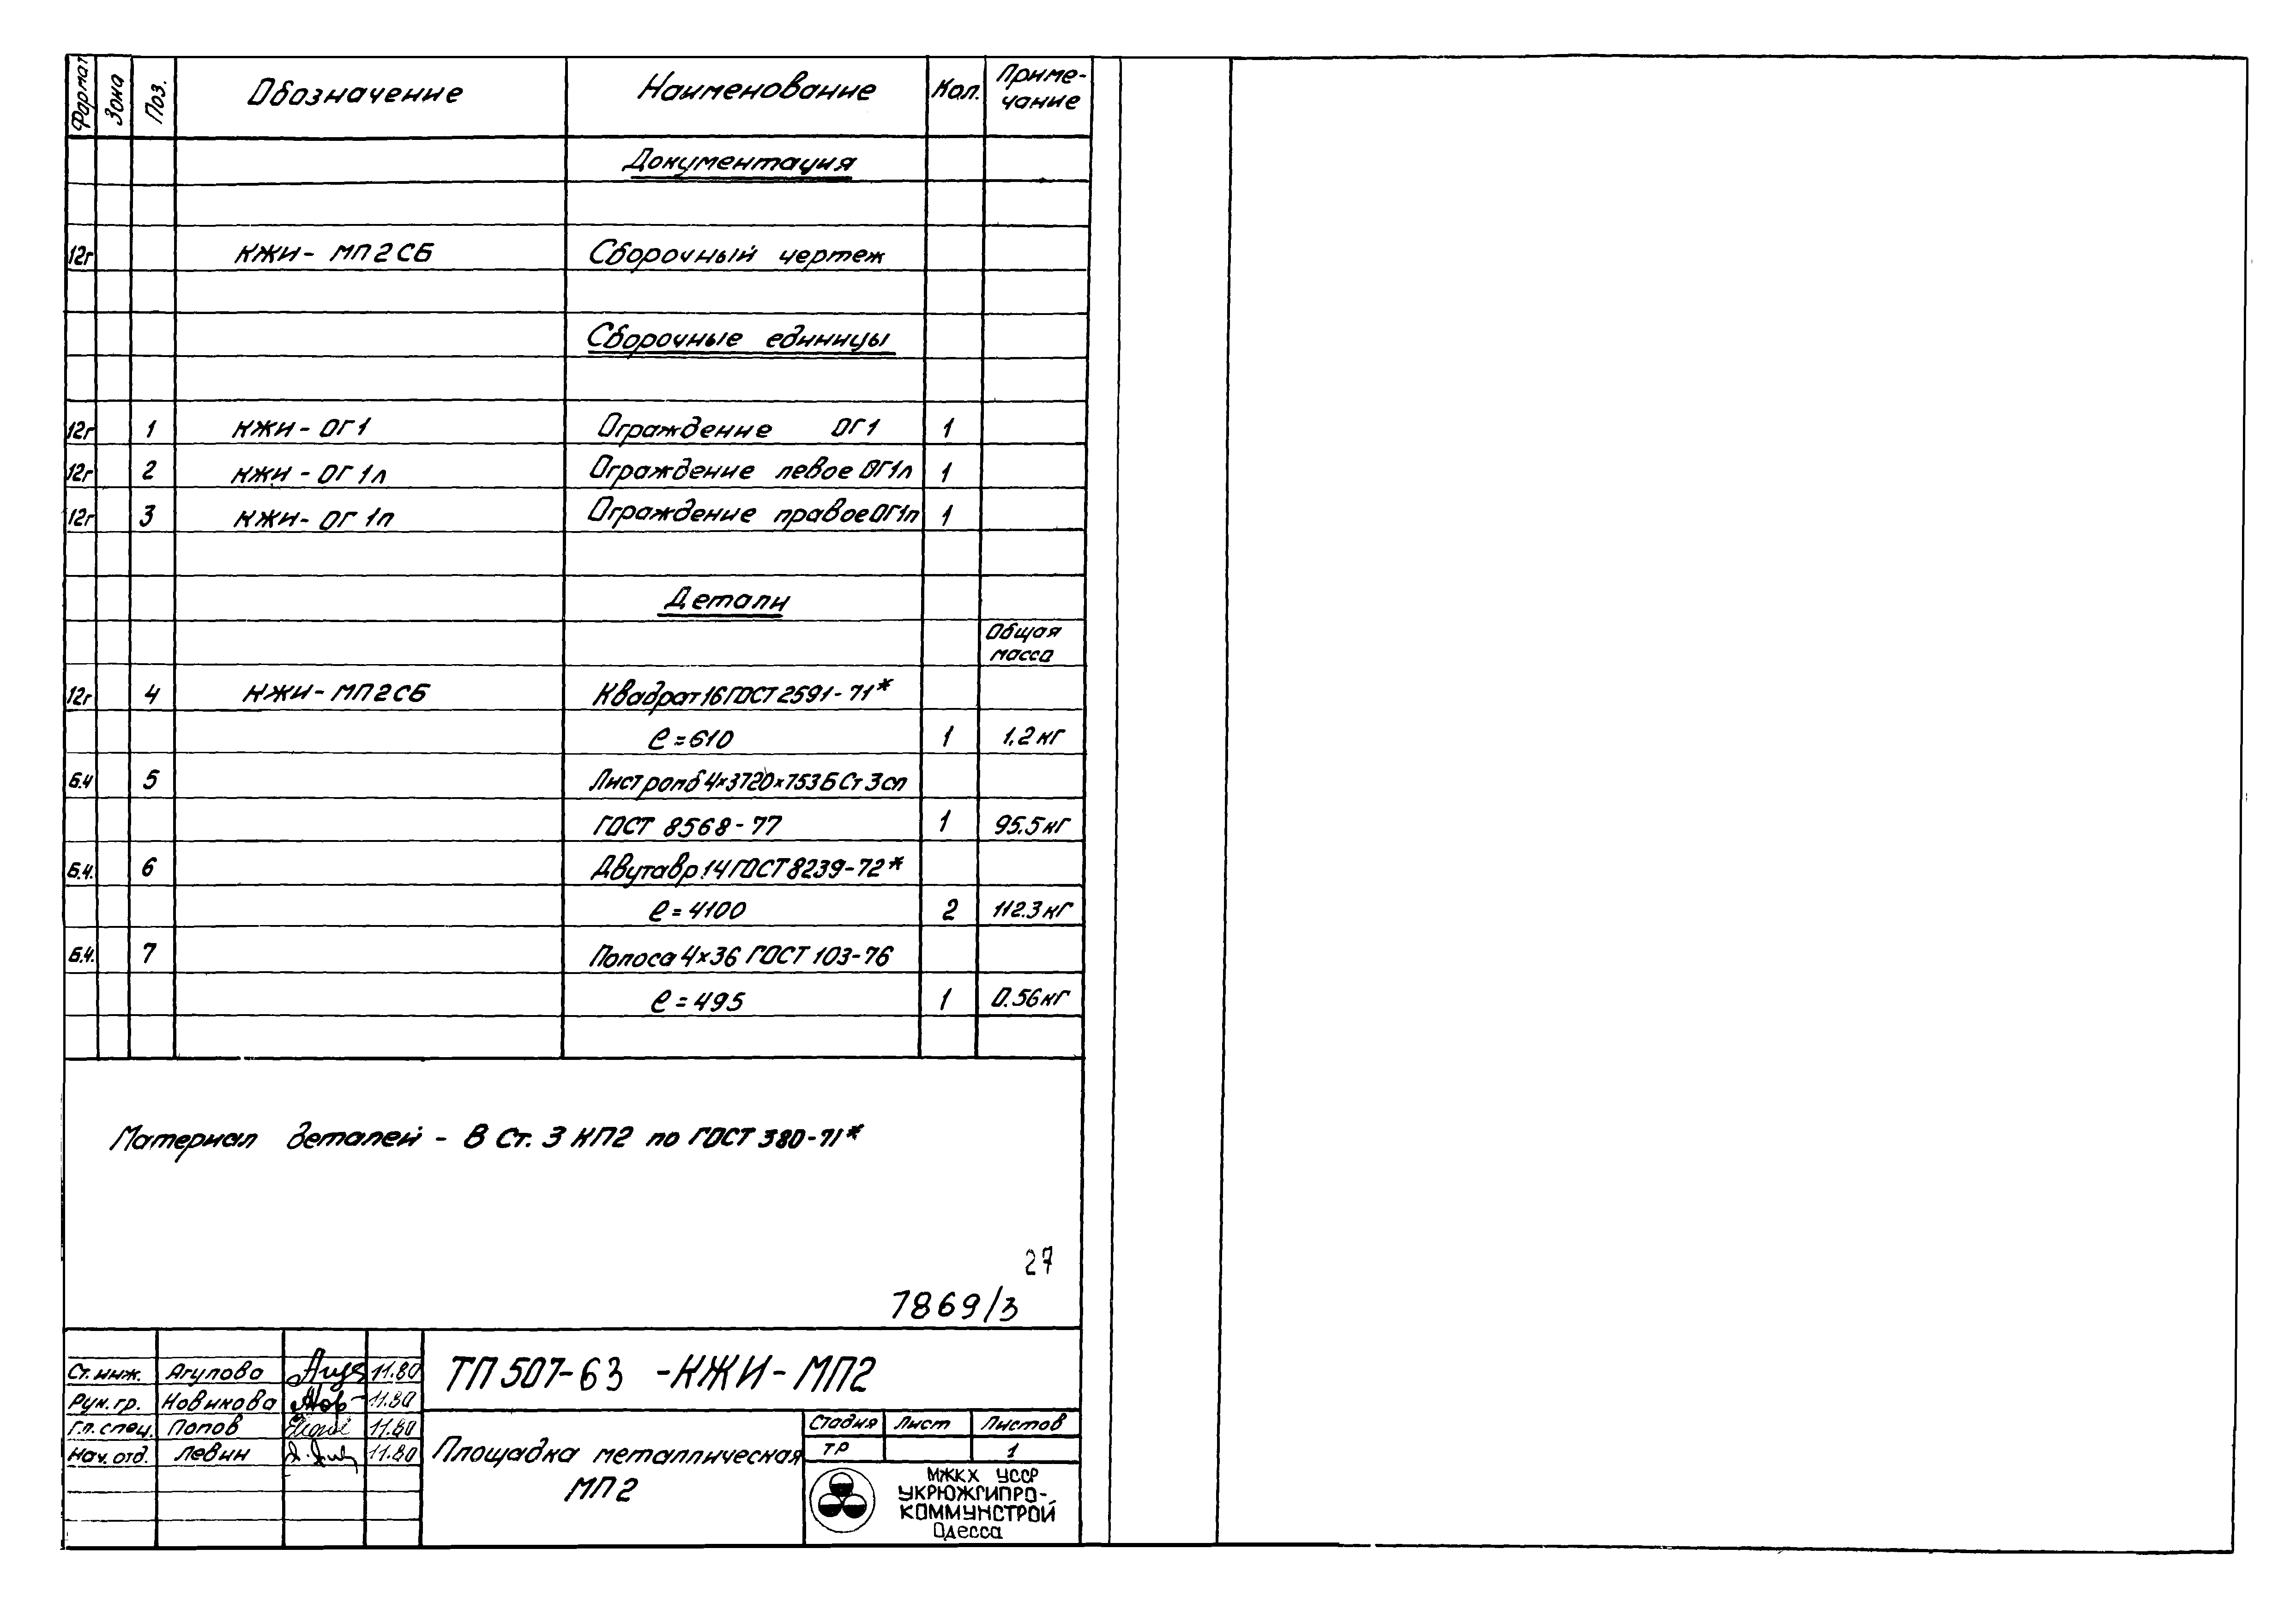 Формат Зона Поз. Обозначение Наименование Кол. Приме-
чание
Документация
12г КЖИ- МП2СБ Сборочный чертеж
Сборочные единицы
12г 1 КЖИ-ОГ1 Ограждение ОГ1 1
12г 2 КЖИ-ОГ1л Ограждение левое ОГ1л 1
12г 3 КЖИ-ОГ1п Ограждение правое ОГ1п 1
Детали
Общая
масса
12г 4 КЖИ-МП2СБ Квадрат 16 ГОСТ 2591-71*
ℓ=610 1 1.2 кг
Б.Ч 5 Лист ромб 4×3720×753 Б Ст 3 сп
ГОСТ 8568-77 1 95.5 кг
Б.Ч. 6 Двутавр 14 ГОСТ 8239-72*
ℓ=4100 2 112.3 кг
Б.Ч. 7 Полоса 4×36 ГОСТ 103-76
ℓ=495 1 0.56 кг
Материал деталей - В Ст. 3 КП2 по ГОСТ 380-71*
27
7869/3
ТП 507-63 -КЖИ- МП2
Ст. инж. Агулова 11.80
Рук. гр. Новикова 11.80
Гл. спец. Попов 11.80
Нач. отд. Левин 11.80
Площадка металлическая
МП2
Стадия Лист Листов
ТР 1
МЖКХ УССР
УКРЮЖГИПРО-
КОММУНСТРОЙ
Одесса